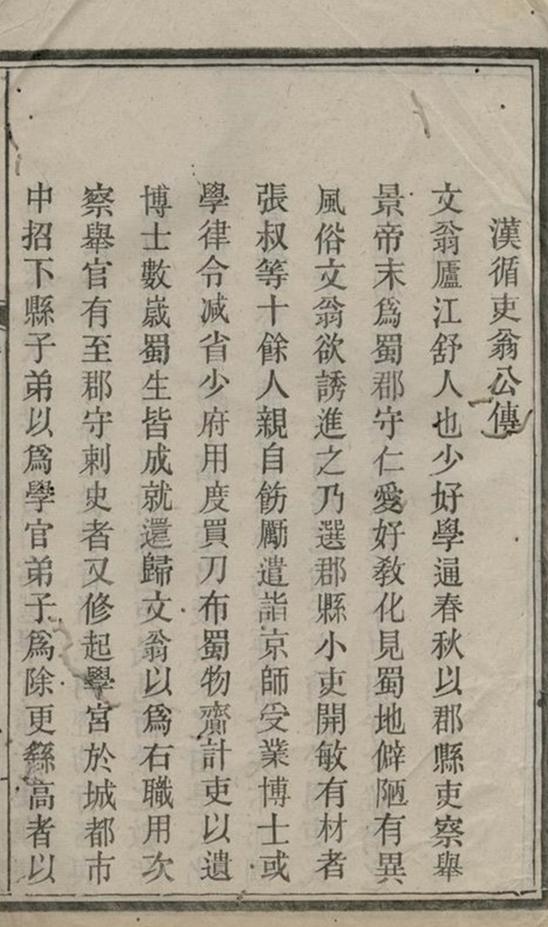 漢循吏翁公傳
文翁廬江舒人也少好學通春秋以郡縣吏察舉
景帝末爲蜀郡守仁愛好敎化見蜀地僻陋有異
風俗文翁欲誘進之乃選郡縣小吏開敏有材者
張叔等十餘人親自飭厲遣詣京師受業博士或
學律令減省少府用度買刀布蜀物齎計吏以遺
博士數歲蜀生皆成就還歸文翁以爲右職用次
察舉官有至郡守刺史者又修起學宮於城都市
中招下縣子弟以爲學官弟子爲除更繇高者以